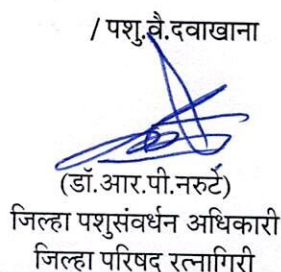 / पशु.वै.दवाखाना
(डॉ.आर.पी.नरुटे)
जिल्हा पशुसंवर्धन अधिकारी
जिल्हा परिषद रत्नागिरी